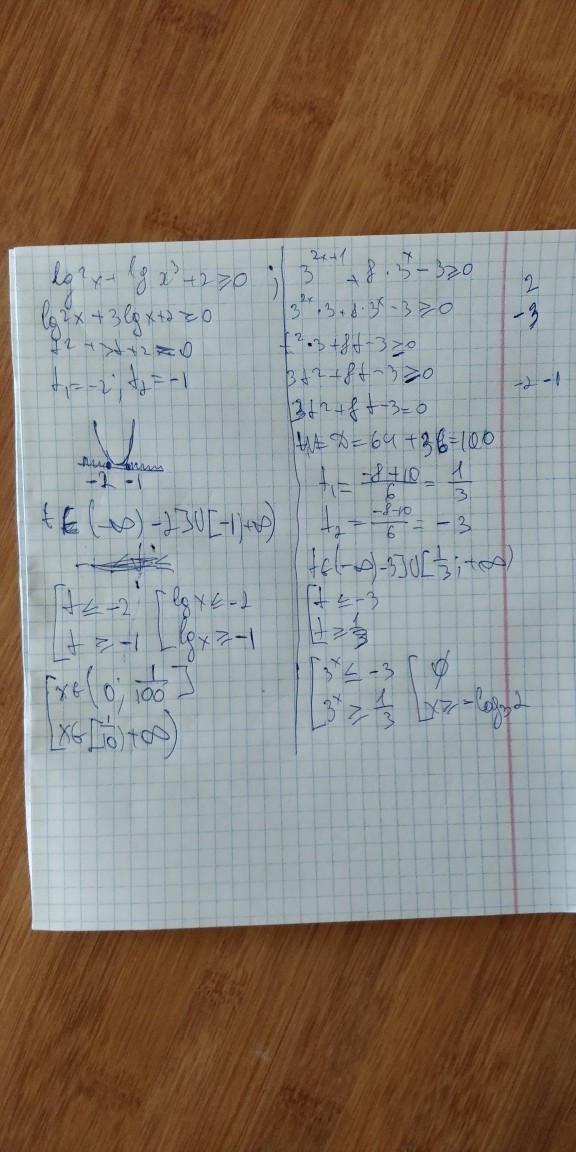 lg²x + lg x³ + 2 ≥ 0 ;
lg²x + 3lgx + 2 ≥ 0
t² + 3t + 2 = 0
t₁ = -2 ; t₂ = -1
-2 -1
t ∈ (-∞) -2] ∪ [-1) +∞)
[t ≤ -2 [lgx ≤ -2
[t ≥ -1 [lgx ≥ -1
[x ∈ (0; 1/100]
[x ∈ [1/10) +∞)
3^(2x+1) + 8 · 3^x - 3 ≥ 0
3^(2x) · 3 + 8 · 3^x - 3 ≥ 0
t² · 3 + 8t - 3 ≥ 0
3t² + 8t - 3 ≥ 0
3t² + 8t - 3 = 0
D = 64 + 36 = 100
t₁ = (-8+10)/6 = 1/3
t₂ = (-8-10)/6 = -3
t ∈ (-∞) -3] ∪ [1/3; +∞)
[t ≤ -3
[t ≥ 1/3
[3^x ≤ -3 [∅
[3^x ≥ 1/3 [x ≥ -log₃2
2
-3
-2 -1